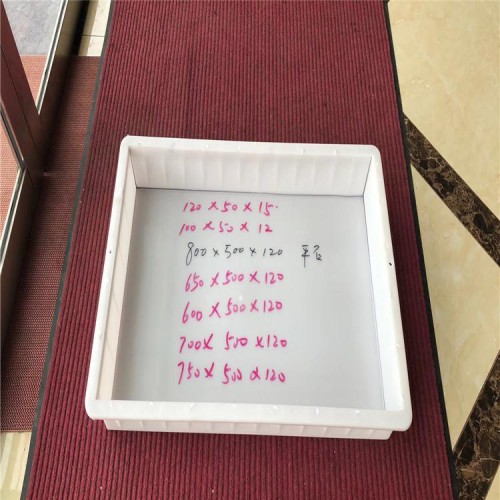 120 × 50 × 15
100 × 50 × 12
800 × 500 × 120 平
650 × 500 × 120
600 × 500 × 120
700 × 500 × 120
750 × 500 × 120